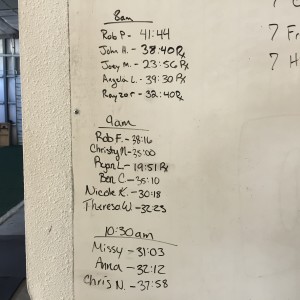 8am
Rob P - 41:44
John H. - 38:40 Rx
Joey M. - 23:56 Rx
Angela L. - 39:30 Rx
Rayzor - 32:40 Rx
9am
Rob F. - 38:16
Christy M - 35:00
Ryan L - 19:51 Rx
Ben C. - 35:10
Nicole K. - 30:18
Theresa W - 32:25
10:30am
Missy - 31:03
Anna - 32:12
Chris N. - 37:58
7
7 Fr
7 H